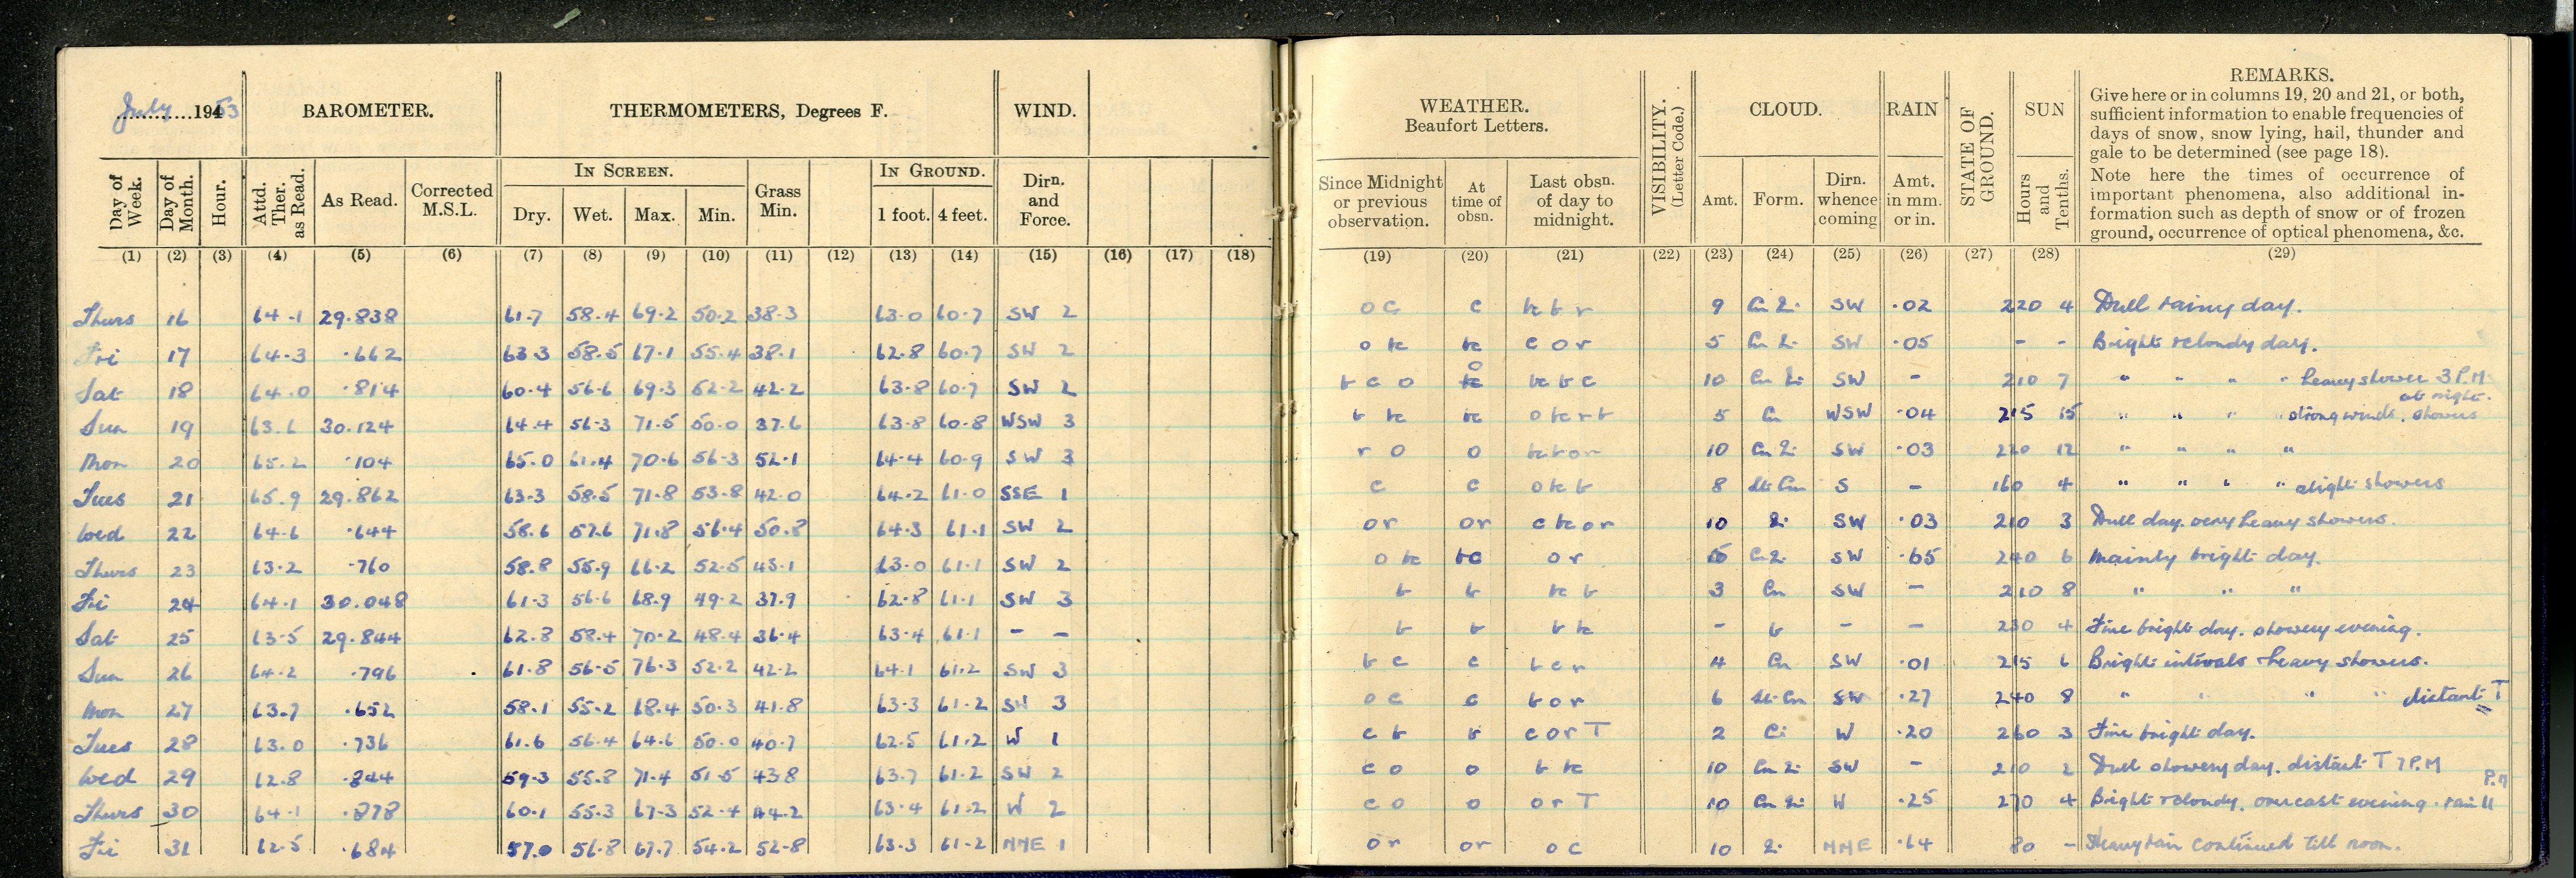 July 1953 BAROMETER. THERMOMETERS, Degrees F. WIND.
Day of Week. Day of Month. Hour. Attd. Ther. as Read. As Read. Corrected M.S.L. IN SCREEN. Dry. Wet. Max. Min. Grass Min. IN GROUND. 1 foot. 4 feet. Dirn. and Force.
(1) (2) (3) (4) (5) (6) (7) (8) (9) (10) (11) (12) (13) (14) (15) (16) (17) (18)
Thurs 16 64.1 29.838 61.7 58.4 69.2 50.2 38.3 63.0 60.7 SW 2
Fri 17 64.3 .662 63.3 58.5 67.1 55.4 38.1 62.8 60.7 SW 2
Sat 18 64.0 .814 60.4 56.6 69.3 52.2 42.2 63.8 60.7 SW 2
Sun 19 63.6 30.124 64.4 56.3 71.5 50.0 37.6 63.8 60.8 WSW 3
Mon 20 65.2 .104 65.0 61.4 70.6 56.3 52.1 64.4 60.9 SW 3
Tues 21 65.9 29.862 63.3 58.5 71.8 53.8 42.0 64.2 61.0 SSE 1
Wed 22 64.6 .644 58.6 57.6 71.8 56.4 50.8 64.3 61.1 SW 2
Thurs 23 63.2 .760 58.8 55.9 66.2 52.5 43.1 63.0 61.1 SW 2
Fri 24 64.1 30.048 61.3 56.6 68.9 49.2 37.9 62.8 61.1 SW 3
Sat 25 63.5 29.844 62.8 58.4 70.2 48.4 36.4 63.4 61.1 - -
Sun 26 64.2 .796 61.8 56.5 76.3 52.2 42.2 64.1 61.2 SW 3
Mon 27 63.7 .652 58.1 55.2 68.4 50.3 41.8 63.3 61.2 SW 3
Tues 28 63.0 .736 61.6 56.4 64.6 50.0 40.7 62.5 61.2 W 1
Wed 29 62.8 .844 59.3 55.8 71.4 51.5 43.8 63.7 61.2 SW 2
Thurs 30 64.1 .878 60.1 55.3 67.3 52.4 44.2 63.4 61.2 W 2
Fri 31 62.5 .684 57.0 56.8 67.7 54.2 52.8 63.3 61.2 NNE 1
WEATHER. Beaufort Letters. VISIBILITY. (Letter Code.) CLOUD. RAIN STATE OF GROUND. SUN REMARKS.
Give here or in columns 19, 20 and 21, or both,
sufficient information to enable frequencies of
days of snow, snow lying, hail, thunder and
gale to be determined (see page 18).
Note here the times of occurrence of
important phenomena, also additional in-
formation such as depth of snow or of frozen
ground, occurrence of optical phenomena, &c.
Since Midnight or previous observation. At time of obsn. Last obsn. of day to midnight. Amt. Form. Dirn. whence coming Amt. in mm. or in. Hours and Tenths.
(19) (20) (21) (22) (23) (24) (25) (26) (27) (28) (29)
o c c bc b r 9 SW .02 220 4 Dull rainy day.
o bc bc c o r 5 SW .05 - - Bright & cloudy day.
b c o o bc b c 10 SW - 210 7 " " " " heavy shower 3 P.M.
b bc bc o bc r b 5 Cu WSW .04 215 15 " " " " strong winds. showers at night.
r o o bc b o r 10 SW .03 220 12 " " " "
c c o bc b 8 St Cu S - 160 4 " " " " slight showers
o r o r c bc o r 10 SW .03 210 3 Dull day. very heavy showers.
o bc bc o r SW .65 240 6 Mainly bright day.
b b bc b 3 Cu SW - 210 8 " " "
b b b bc - b - - 230 4 Fine bright day. showery evening.
b c c b c r 4 Cu SW .01 215 6 Bright intervals & heavy showers.
o c c b o r 6 St-Cu SW .27 240 8 " " " distant T
c b b c o r T 2 Ci W .20 260 3 Fine bright day.
c o o b bc 10 SW - 210 2 Dull showery day. distant T 7 P.M
c o o o r T 10 W .25 270 4 Bright & cloudy. overcast evening. rain 11 P.M
o r o r o c 10 NNE .64 80 - Heavy rain continued till noon.